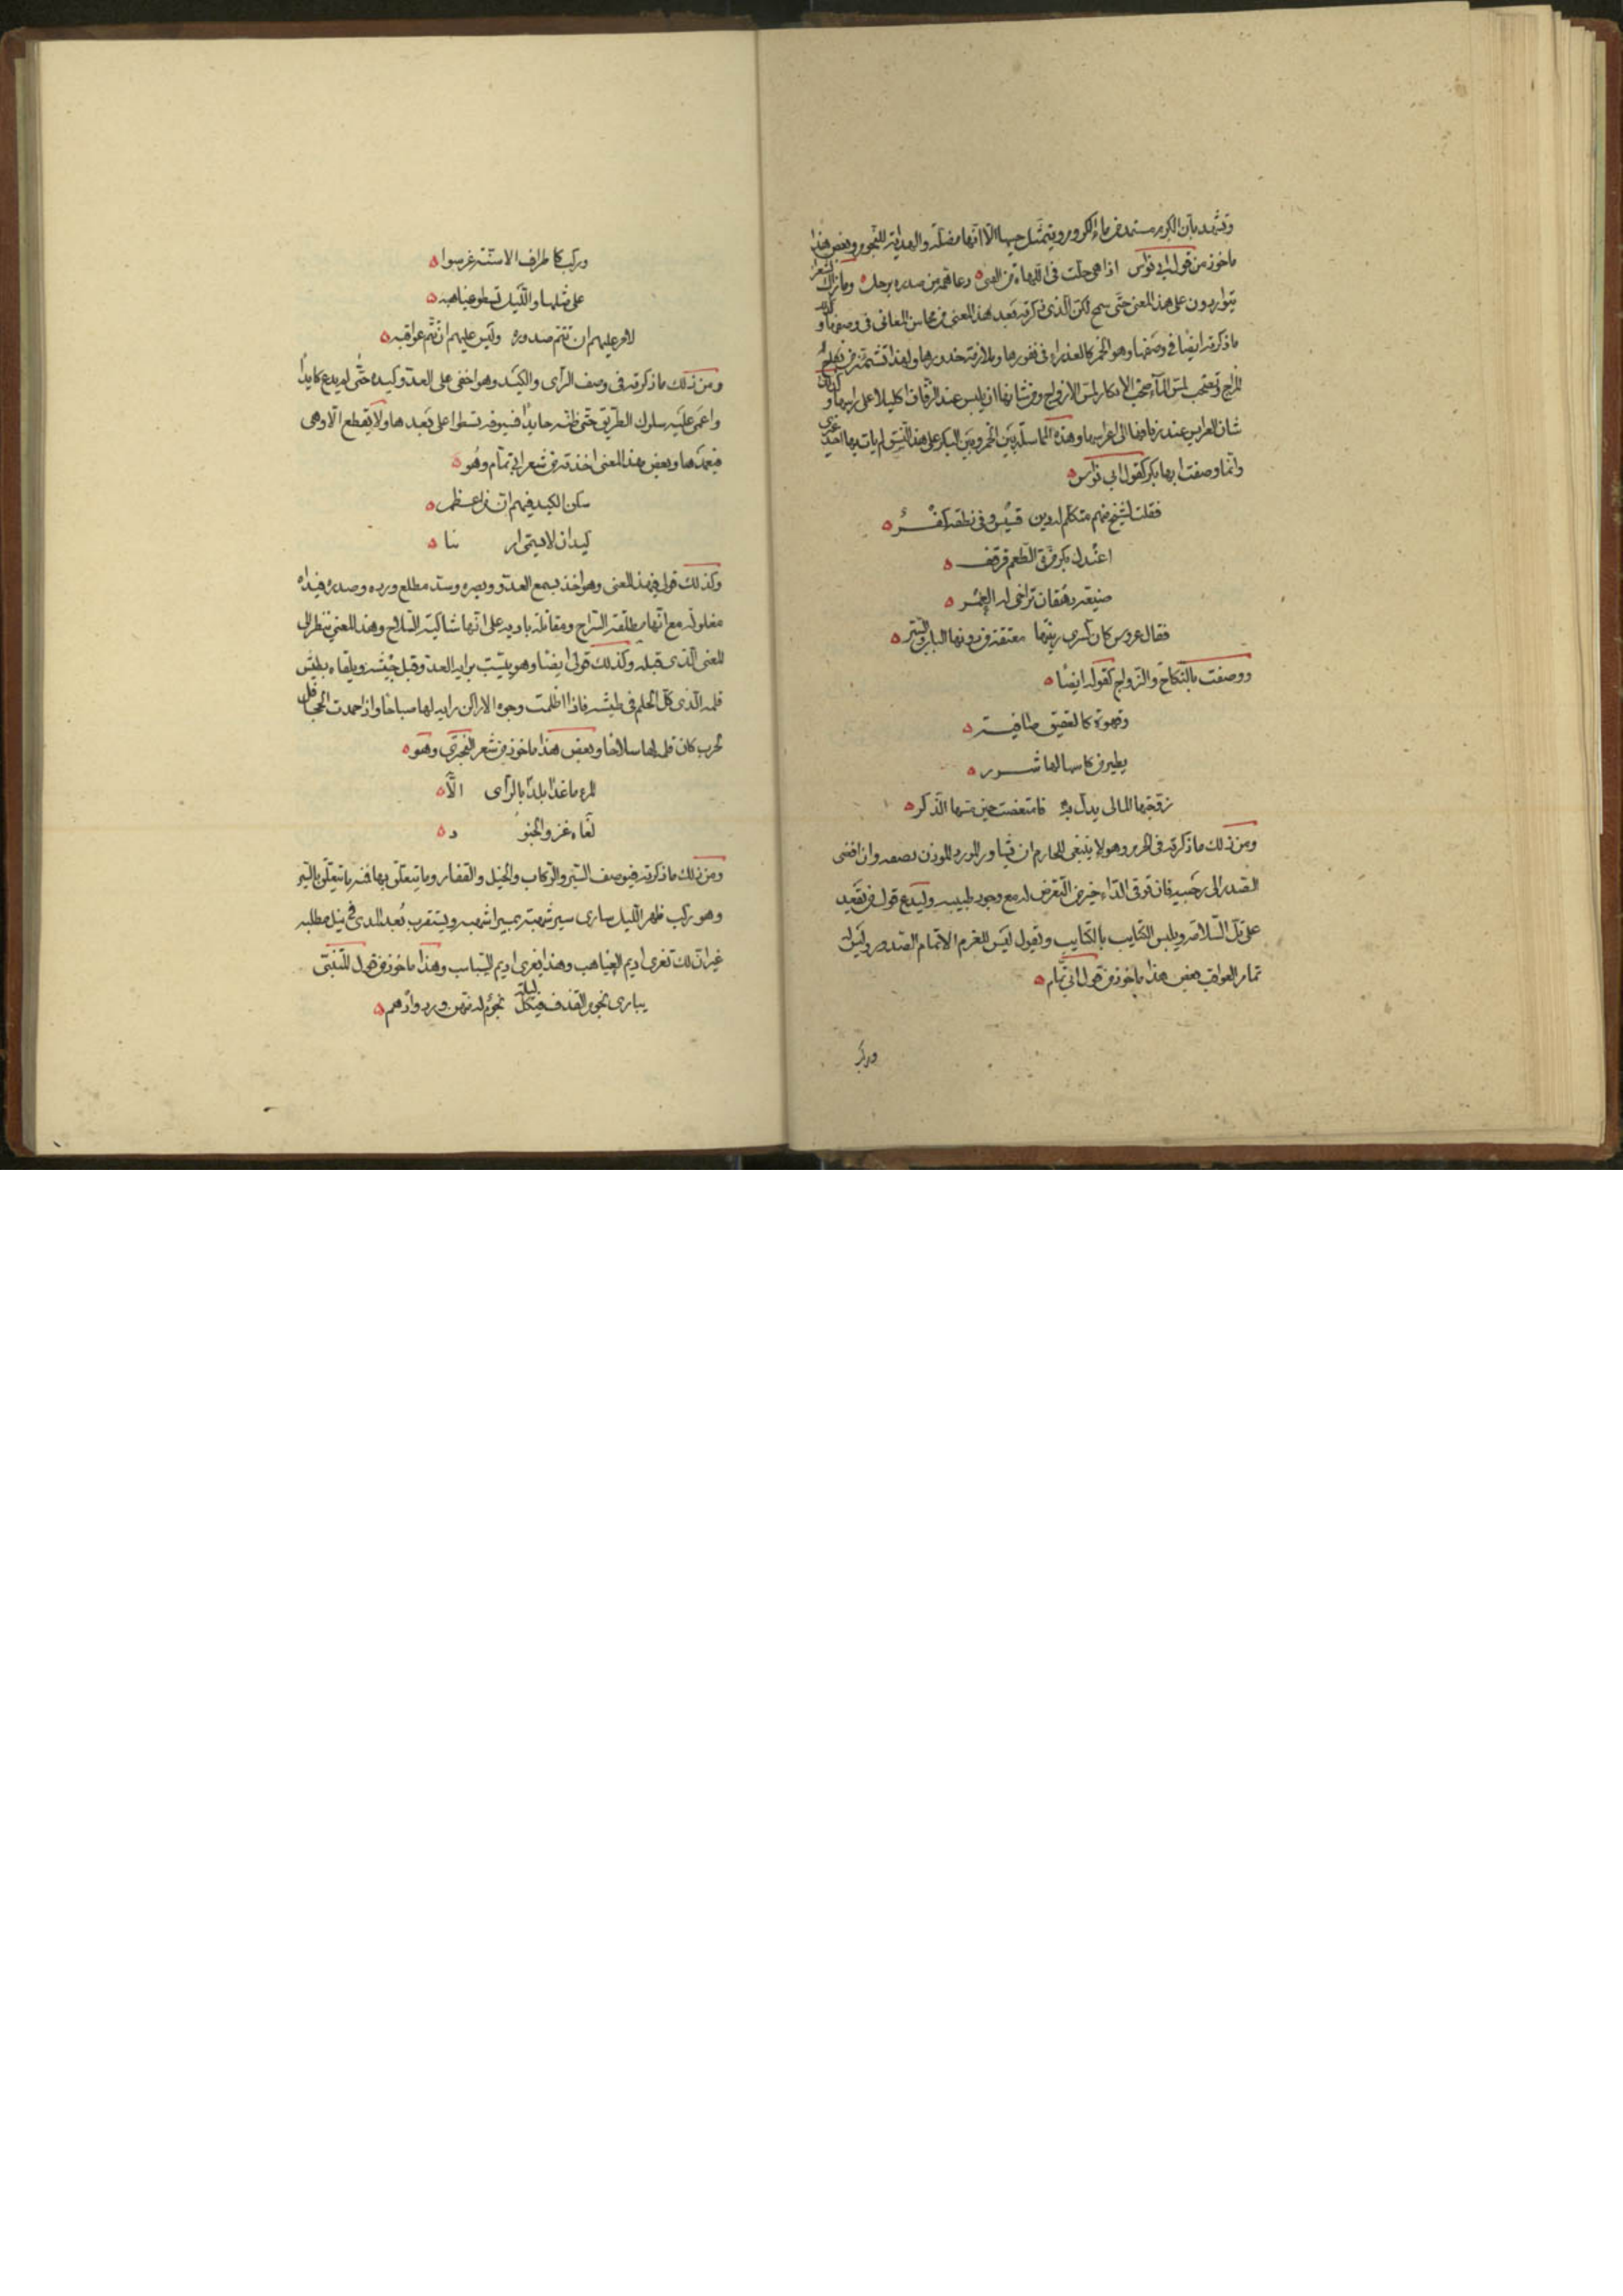 وتشهد بان الكرم مستمد من ماء الكروم ويتمثل حبها الا انها مضلة والهداية للنجوم وبعض هذا
ماخوذ من قول ابي نواس اذا هي حلت في اللهاة من الفتى ه دعا همه من صدره برحيل ه وما زال الشعراء
يتواردون على هذا المعنى حتى سمج لكن الذي ذكرته بعد هذا المعنى من محاسن المعاني في وصفها وكذلك
ما ذكرته ايضا في وصفها وهو الخمر كالعذراء في نفورها وملازمة خدورها ولهذا تشمئز من نكاح
المزاج وتصخب لمس الماء صخب الابكار لمس الازواج ومن شانها ان يلبس عند الزفاف اكليلا على راسها وكذلك
شان العرايس عند زفافها الى اعراسها وهذه المماثلة بين الخمر وبين البكر على هذا النسق لم يات بها احد غيري
وانما وصفت بانها بكر كقول ابي نواس ه
فقلت لشيخ منهم متكلم له دين قسيس وفي نطقه كفر ه
اعندك بكر مزة الطعم قرقف ه
صنيعة دهقان تراخى له العمر ه
فقال عروس كان كسرى ربيبها معتقة من دونها الباب والستر ه
ووصفت بالنكاح والزواج كقوله ايضا ه
وقهوة كالعقيق صافية ه
يطير من كاسها لها شرر ه
زوجتها الما لي يدل به فامتعضت حين مسها الذكر ه
ومن ذلك ما ذكرته في الحزم وهو لا ينبغي للحازم ان يشاور الورد الموذن بصفه وان افضى
الصدر الى رحبيه فان توقي الداء خير من التعرض له مع وجود طبيبه وليدع قول من يقعد
على تل السلامة ويلبس الكتايب بالكتايب ويقول ليس للغرم الا تمام الصدور وليس له
تمام العواقب وبعض هذا ماخوذ من قول ابي تمام ه
وركب
وركب كاطراف الاسنة عرسوا ه
على مثلها والليل تسطو غياهبه ه
لامر عليهم ان تتم صدوره وليس عليهم ان تتم عواقبه ه
ومن ذلك ما ذكرته في وصف الرأي والكيد وهو اخفى على العدو كيده حتى لم يدع كايدا
واعمى عليه سلوك الطريق حتى ظنه حايدا فسيوفه تسطوا على بعدها ولا يقطع الا وهي
في غمدها وبعض هذا المعنى اخذته من شعر ابي تمام وهو ه
سكن الكيد فيهم ان من اعظم ه
كيد ان لا يسمى ار يبا ه
وكذلك قولي في هذا المعنى وهو اخذ بسمع العدو وبصره وسد مطلع ورده وصدره فيداه
مغلولة مع انها مطلقة السراح ومقاتله بادية على انها شاكية السلاح وهذا المعنى ينظر الى
المعنى الذي قبله وكذلك قولي ايضا وهو يبيت برايه العدو قبل جيشه ويلقاه بطيش
قلمه الذي كل الحلم في طيشه فاذا اظلمت وجوه الاراكن رايه لها صباحا واذا حمدت الجحافل
لحرب كان قلمه لها سلاحا وبعض هذا ماخوذ من شعر البحتري وهو ه
لم ما غدا بلدا بالرأى الا ه
لقاه غزو الجنو د ه
ومن ذلك ما ذكرته في وصف السير والركاب والخيل والقفار وما يتعلق بها فمنه ما يتعلق بالسير
وهو ركب ظهر الليل يبارى سير شهبته بمسير اشهبه ويستقرب بعد المدى في نيل مطلبه
غير ان تلك تفرى اديم الغياهب وهذا يفرى اديم السباسب وهذا ماخوذ من قول المتنبي
يبارى نجوم القذف في كل ليلة نجوم له منهن ورد وادهم ه